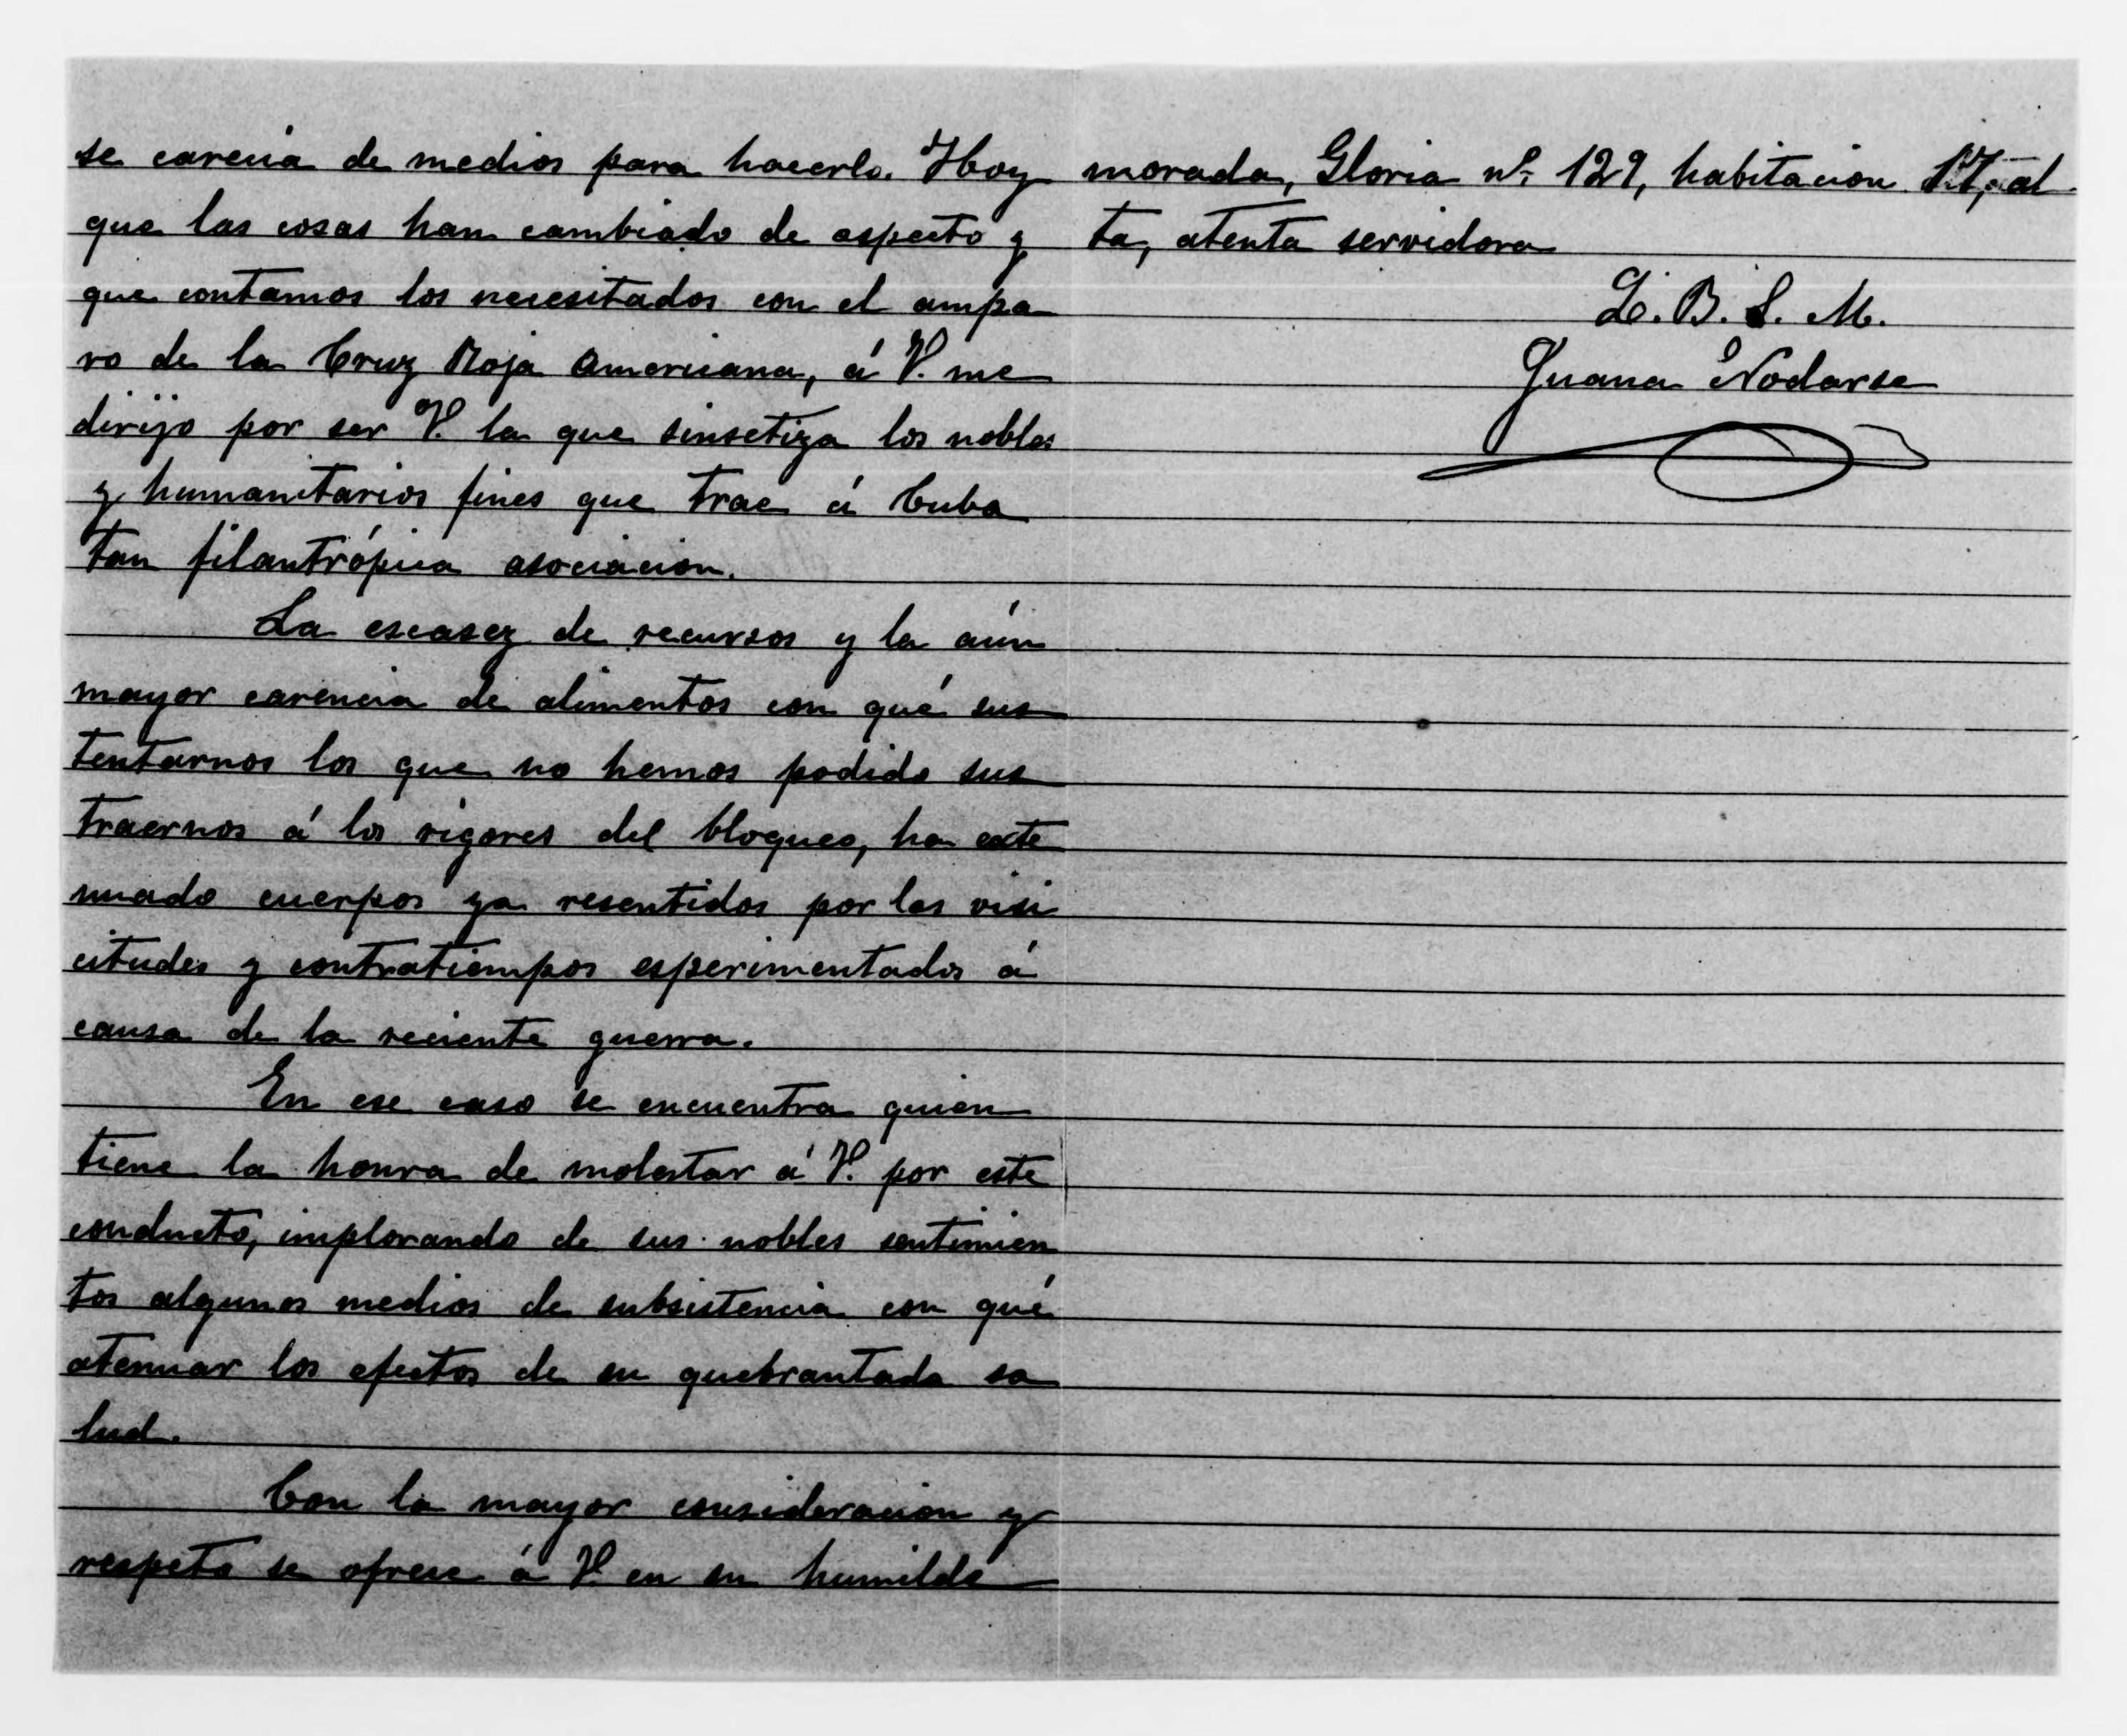 se carecia de medios para hacerlo. Hoy
que las cosas han cambiado de aspecto y
que contamos los necesitados con el ampa
ro de la Cruz Roja Americana, á V. me
dirijo por ser V. la que sinsetiza los nobles
y humanitarios fines que trae á Cuba
tan filantrópica asociacion.
La escasez de recursos y la aún
mayor carencia de alimentos con qué sus
tentarnos los que no hemos podido sus
traernos á los rigores del bloqueo, ha exte
nuado cuerpos ya resentidos por las visi
citudes y contratiempos esperimentados á
causa de la reciente guerra.
En ese caso se encuentra quien
tiene la honra de molestar á V. por este
conducto, implorando de sus nobles sentimien
tos algunos medios de subsistencia con qué
atenuar los efectos de su quebrantada sa
lud.
Con la mayor consideracion y
respeto se ofrece á V. en su humilde
morada, Gloria nº 129, habitacion 17, al
ta, atenta servidora
L. B. S. M.
Juana Nodarse